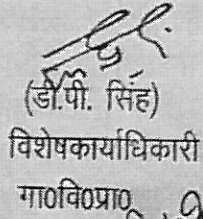 (डी.पी. सिंह)
विशेषकार्याधिकारी
गा०वि०प्रा०